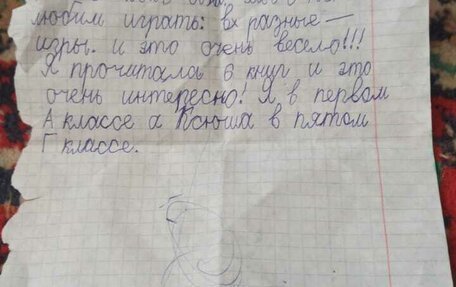 любим играть: вх разные —
игры. и это очень весело!!!
Я прочитала 6 книг и это
очень интересно! Я в первом
А классе а Ксюша в пятом
Г классе.